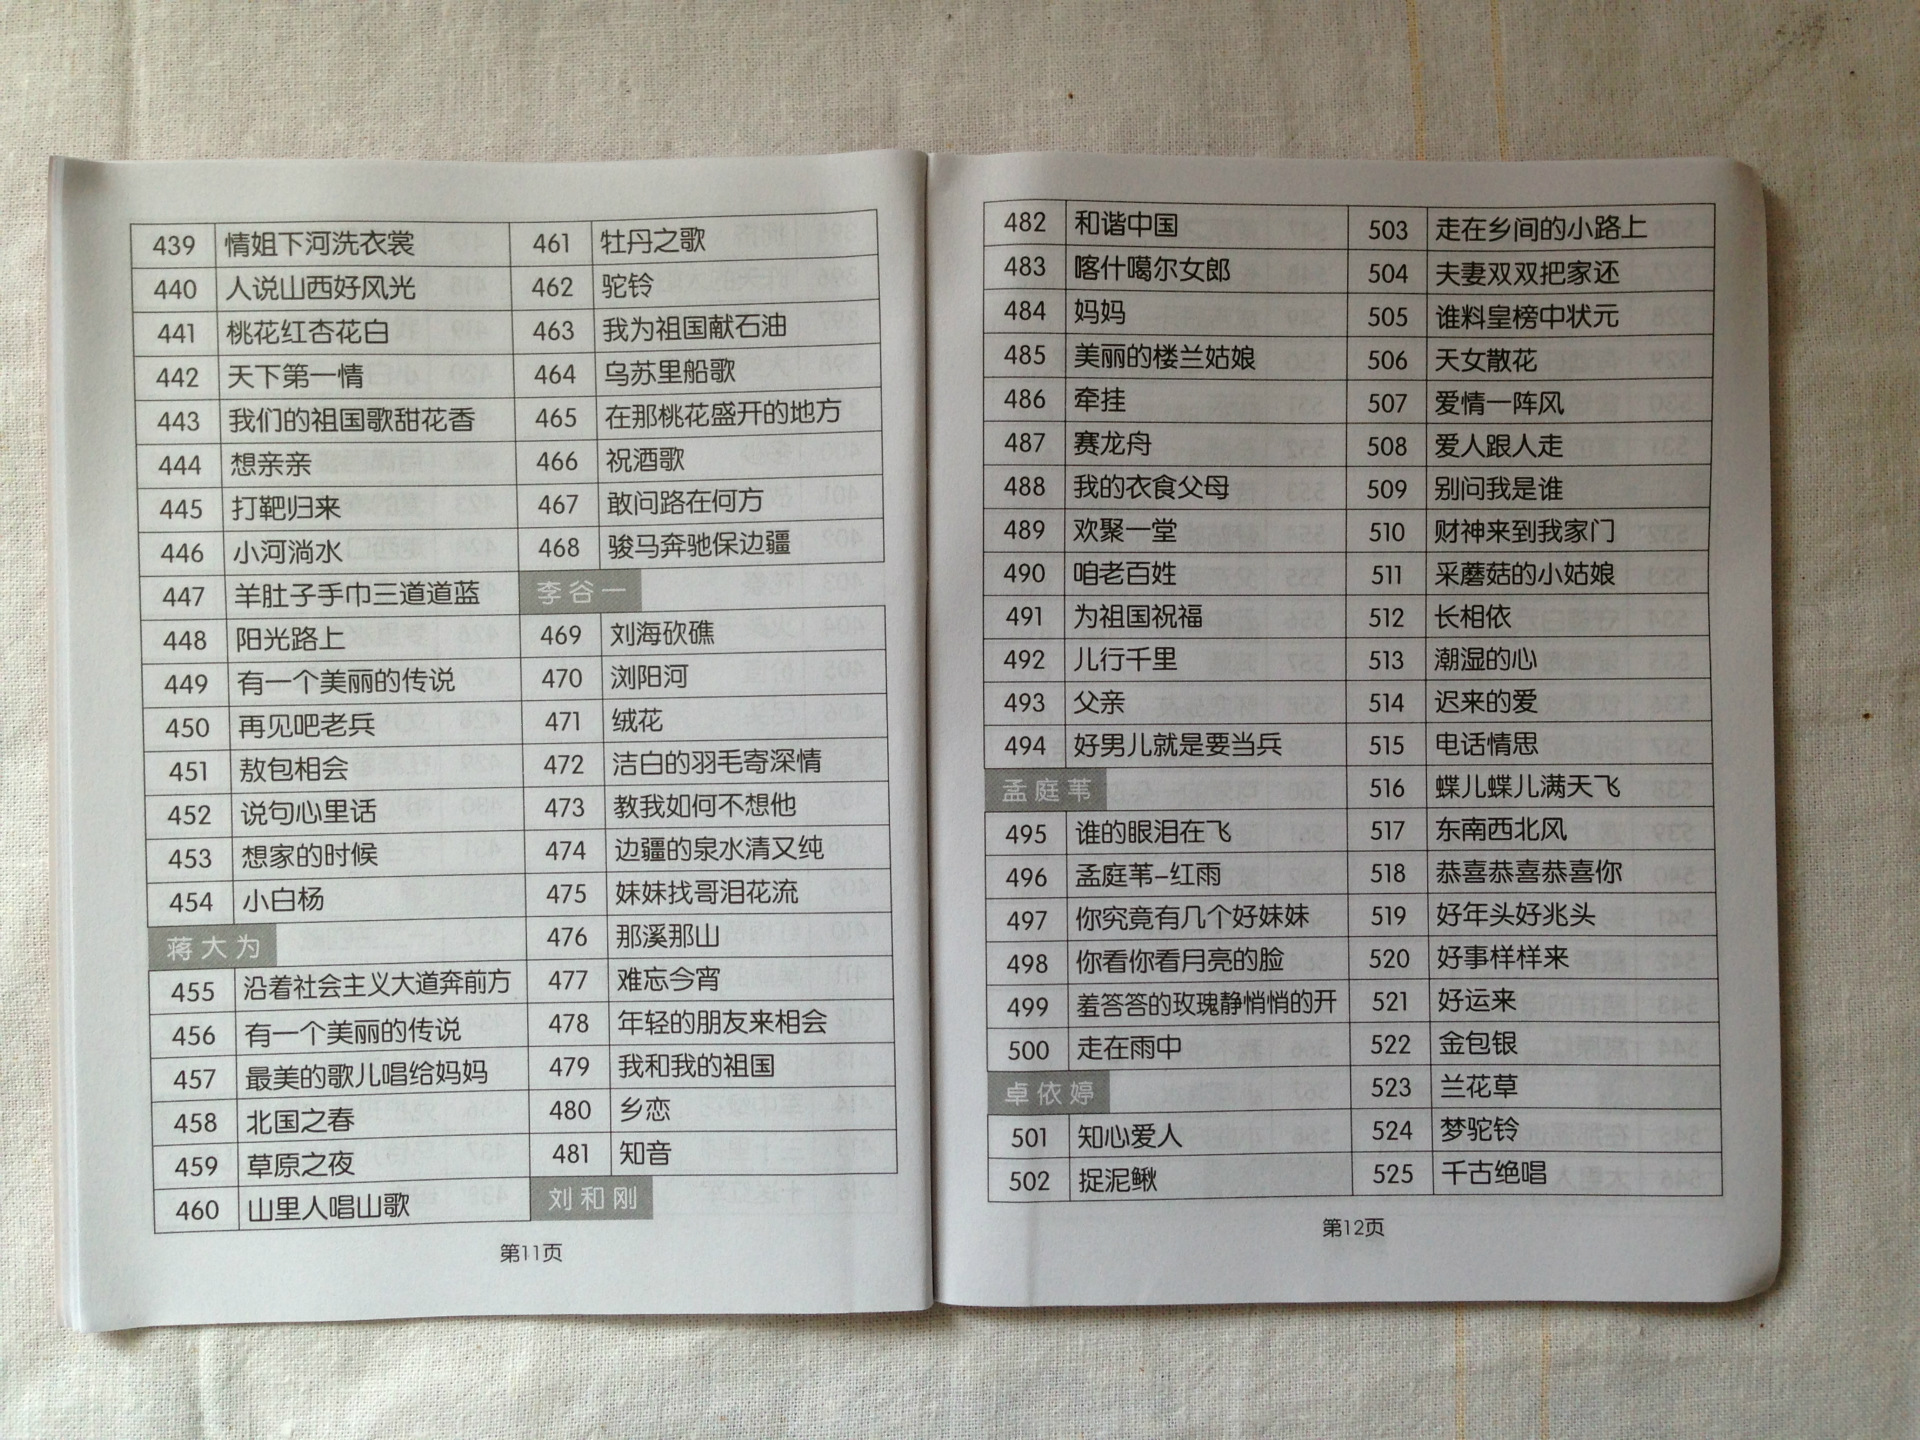 439 情姐下河洗衣裳
440 人说山西好风光
441 桃花红杏花白
442 天下第一情
443 我们的祖国歌甜花香
444 想亲亲
445 打靶归来
446 小河淌水
447 羊肚子手巾三道道蓝
448 阳光路上
449 有一个美丽的传说
450 再见吧老兵
451 敖包相会
452 说句心里话
453 想家的时候
454 小白杨
蒋大为
455 沿着社会主义大道奔前方
456 有一个美丽的传说
457 最美的歌儿唱给妈妈
458 北国之春
459 草原之夜
460 山里人唱山歌
461 牡丹之歌
462 驼铃
463 我为祖国献石油
464 乌苏里船歌
465 在那桃花盛开的地方
466 祝酒歌
467 敢问路在何方
468 骏马奔驰保边疆
李谷一
469 刘海砍礁
470 浏阳河
471 绒花
472 洁白的羽毛寄深情
473 教我如何不想他
474 边疆的泉水清又纯
475 妹妹找哥泪花流
476 那溪那山
477 难忘今宵
478 年轻的朋友来相会
479 我和我的祖国
480 乡恋
481 知音
刘和刚
第11页
482 和谐中国
483 喀什噶尔女郎
484 妈妈
485 美丽的楼兰姑娘
486 牵挂
487 赛龙舟
488 我的衣食父母
489 欢聚一堂
490 咱老百姓
491 为祖国祝福
492 儿行千里
493 父亲
494 好男儿就是要当兵
孟庭苇
495 谁的眼泪在飞
496 孟庭苇-红雨
497 你究竟有几个好妹妹
498 你看你看月亮的脸
499 羞答答的玫瑰静悄悄的开
500 走在雨中
卓依婷
501 知心爱人
502 捉泥鳅
503 走在乡间的小路上
504 夫妻双双把家还
505 谁料皇榜中状元
506 天女散花
507 爱情一阵风
508 爱人跟人走
509 别问我是谁
510 财神来到我家门
511 采蘑菇的小姑娘
512 长相依
513 潮湿的心
514 迟来的爱
515 电话情思
516 蝶儿蝶儿满天飞
517 东南西北风
518 恭喜恭喜恭喜你
519 好年头好兆头
520 好事样样来
521 好运来
522 金包银
523 兰花草
524 梦驼铃
525 千古绝唱
第12页